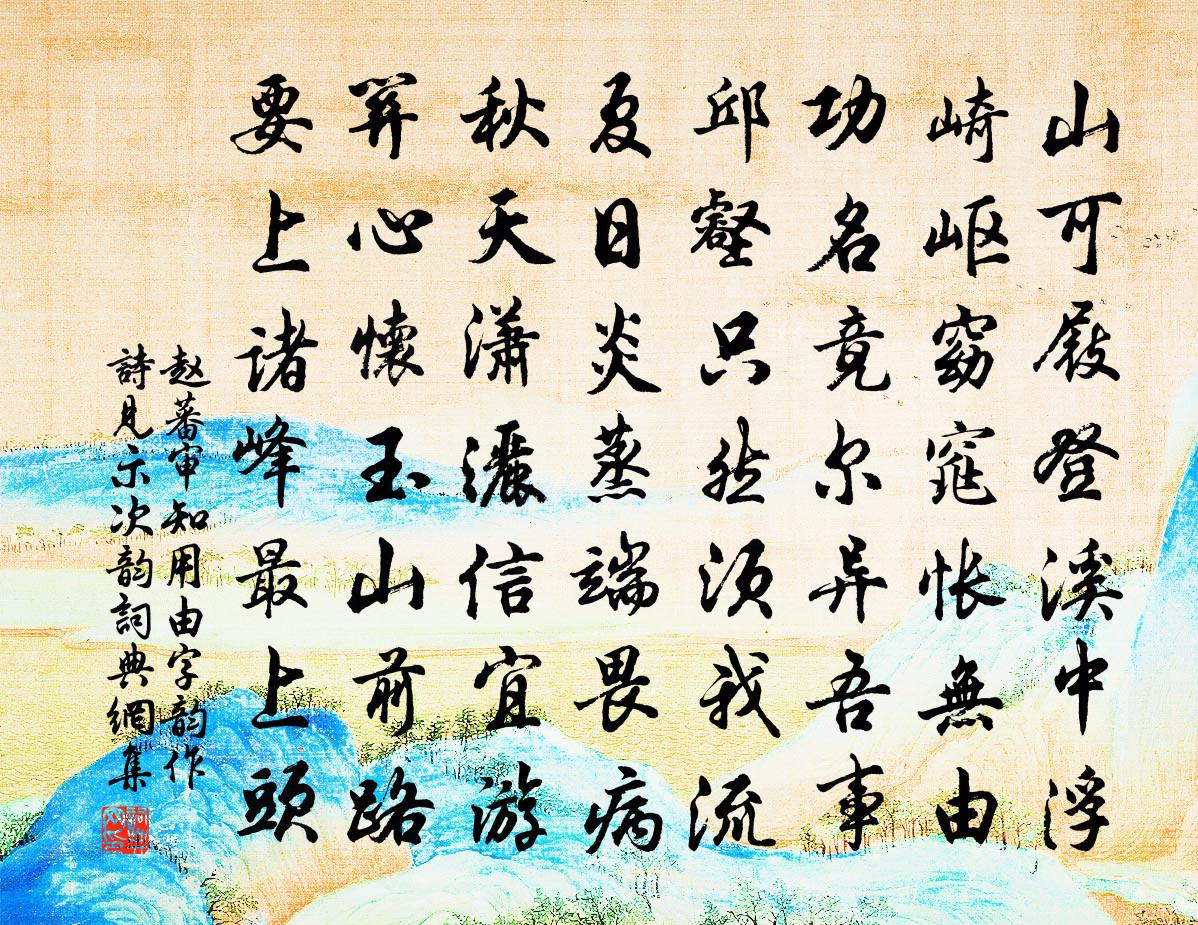 山可屐登溪中浮
崎岖窈窕怅無由
功名竟尔异吾事
邱壑只然须我流
夏日炎蒸端畏病
秋天瀟灑信宜游
開心懷玉山前路
要上诸峰最上頭
赵蕃审知用由字韵作
詩見示次韵詞典網集